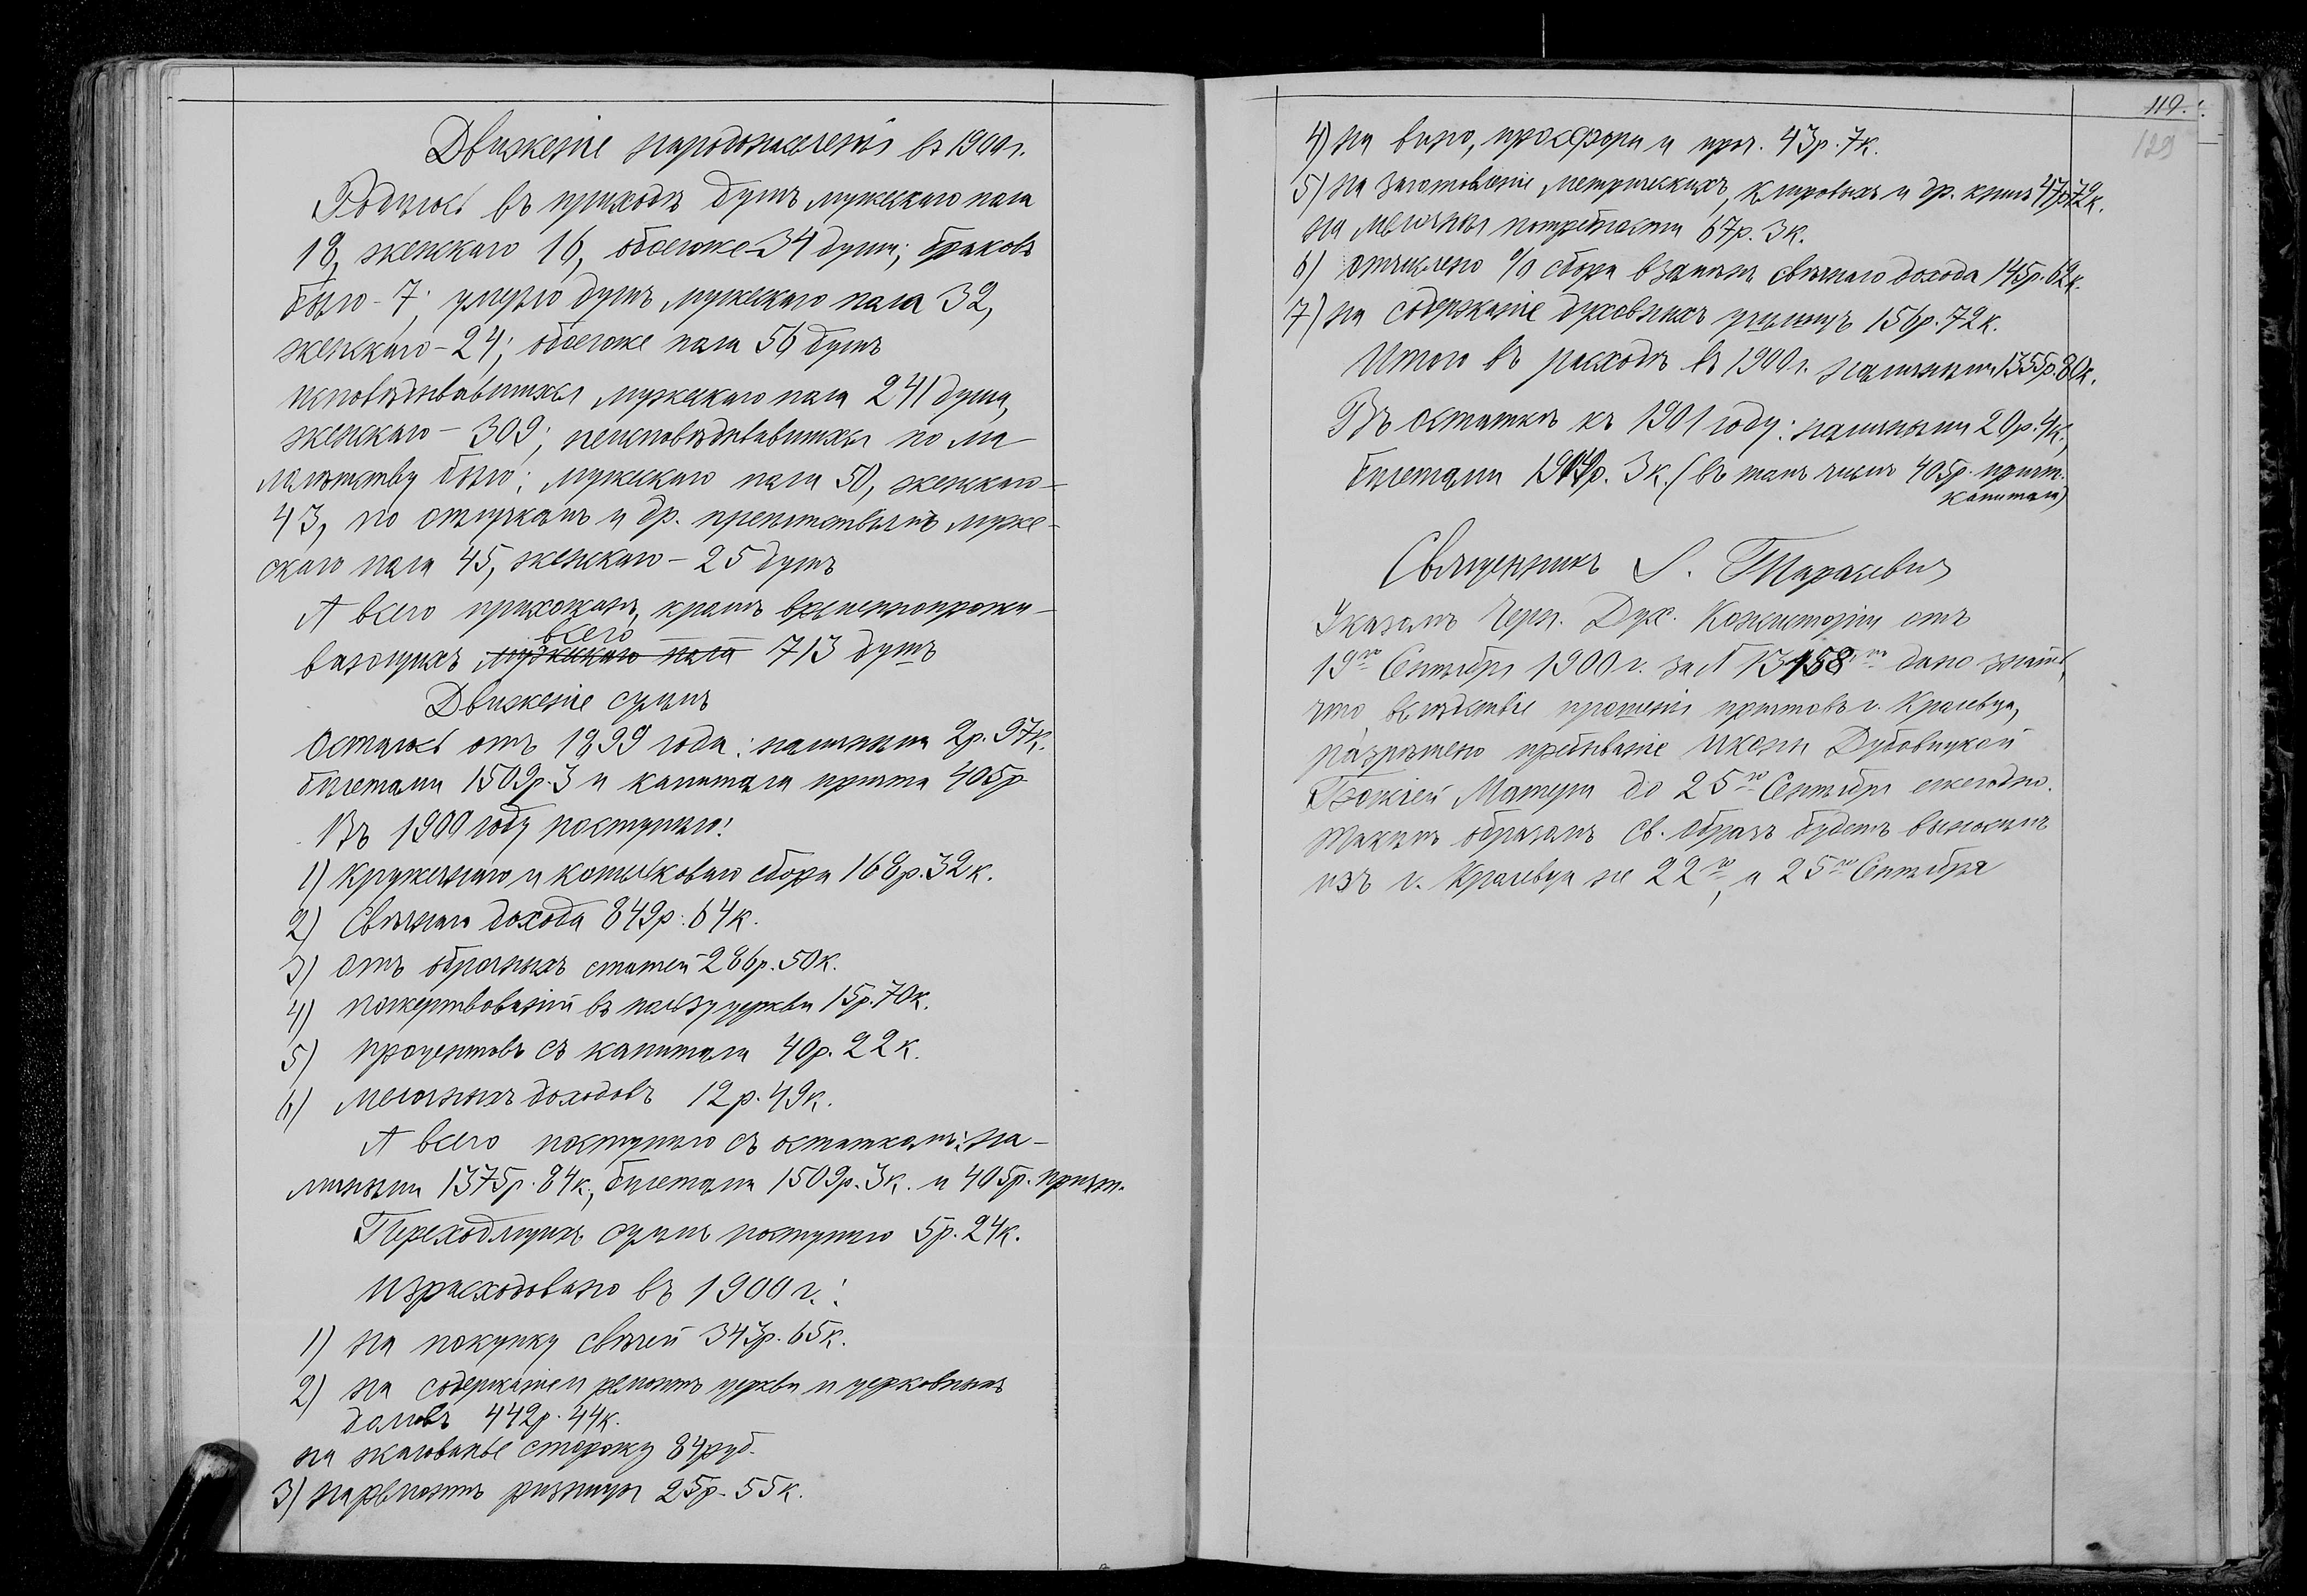 Движеніе народонаселенія въ 1900 г.
Родилось въ приходѣ душъ мужескаго пола
18, женскаго 16, обоегоже 34 души; браковъ
было - 7; умерло душъ мужескаго пола 32,
женскаго - 24; обоегоже пола 56 душъ
исповѣдывавшихся мужескаго пола 241 душа,
женскаго - 309; неисповѣдывавшихся по ма-
лолѣтству было: мужескаго пола 50, женскаго -
43, по отлучкамъ и др. препятствіямъ муже-
скаго пола 45, женскаго - 25 душъ
А всего прихожанъ, кромѣ временнопрожи-
всего
вающихъ мужескаго пола 713 душъ
Движеніе суммъ
Осталось отъ 1899 года: наличными 2р. 97к.
билетами 1509р. 3 и капитала причта 405р.
Въ 1900 году поступило:
1) кружечнаго и кошельковаго сбора 168р. 32к.
2) Свѣчнаго дохода 849р. 64к.
3) Отъ оброчныхъ статей 286р. 50к.
4) пожертвованій въ пользу церкви 15р. 70к.
5) процентовъ съ капитала 40р. 22к.
6) мелочныхъ доходовъ 12р. 49к.
А всего поступило съ остаткомъ: на-
личными 1375р. 84к., билетами 1509р. 3к. и 405р. причт.
Переходящихъ суммъ поступило 5р. 24к.
Израсходовано въ 1900 г.:
1) на покупку свѣчей 343р. 65к.
2) на содержаніе и ремонтъ церкви и церковныхъ
домовъ 442р. 44к.
на жалованье сторожу 84 руб.
3) на ремонтъ ризницы 25р. 55к.
119.
129
4) на вино, просфоры и проч. 43р. 7к.
5) на заготовленіе метрическихъ, клировыхъ и др. книгъ 47р. 72к.
на мелочныя потребности 67р. 3к.
6) отчислено % сбора взамѣнъ свѣчнаго дохода 145р. 62к.
7) на содержаніе духовныхъ училищъ 156р. 72к.
Итого въ расходѣ въ 1900 г. наличными 1355р. 80к.
Въ остаткѣ къ 1901 году: наличными 20р. 4к.,
билетами 1914р. 3к. (въ томъ числѣ 405р. причт.
капитала)
Священникъ Тарасевич
Указомъ Черн. Дух. Консисторіи отъ
19го Сентября 1900 г. за № 13158мъ дано знать,
что вслѣдствіе прошенія причтовъ г. Кролевца,
разрѣшено пребываніе иконы Дубовицкой
Божіей Матери до 25го Сентября ежегодно.
Такимъ образомъ св. образъ будетъ выносимъ
изъ г. Кролевца не 22го, а 25го Сентября